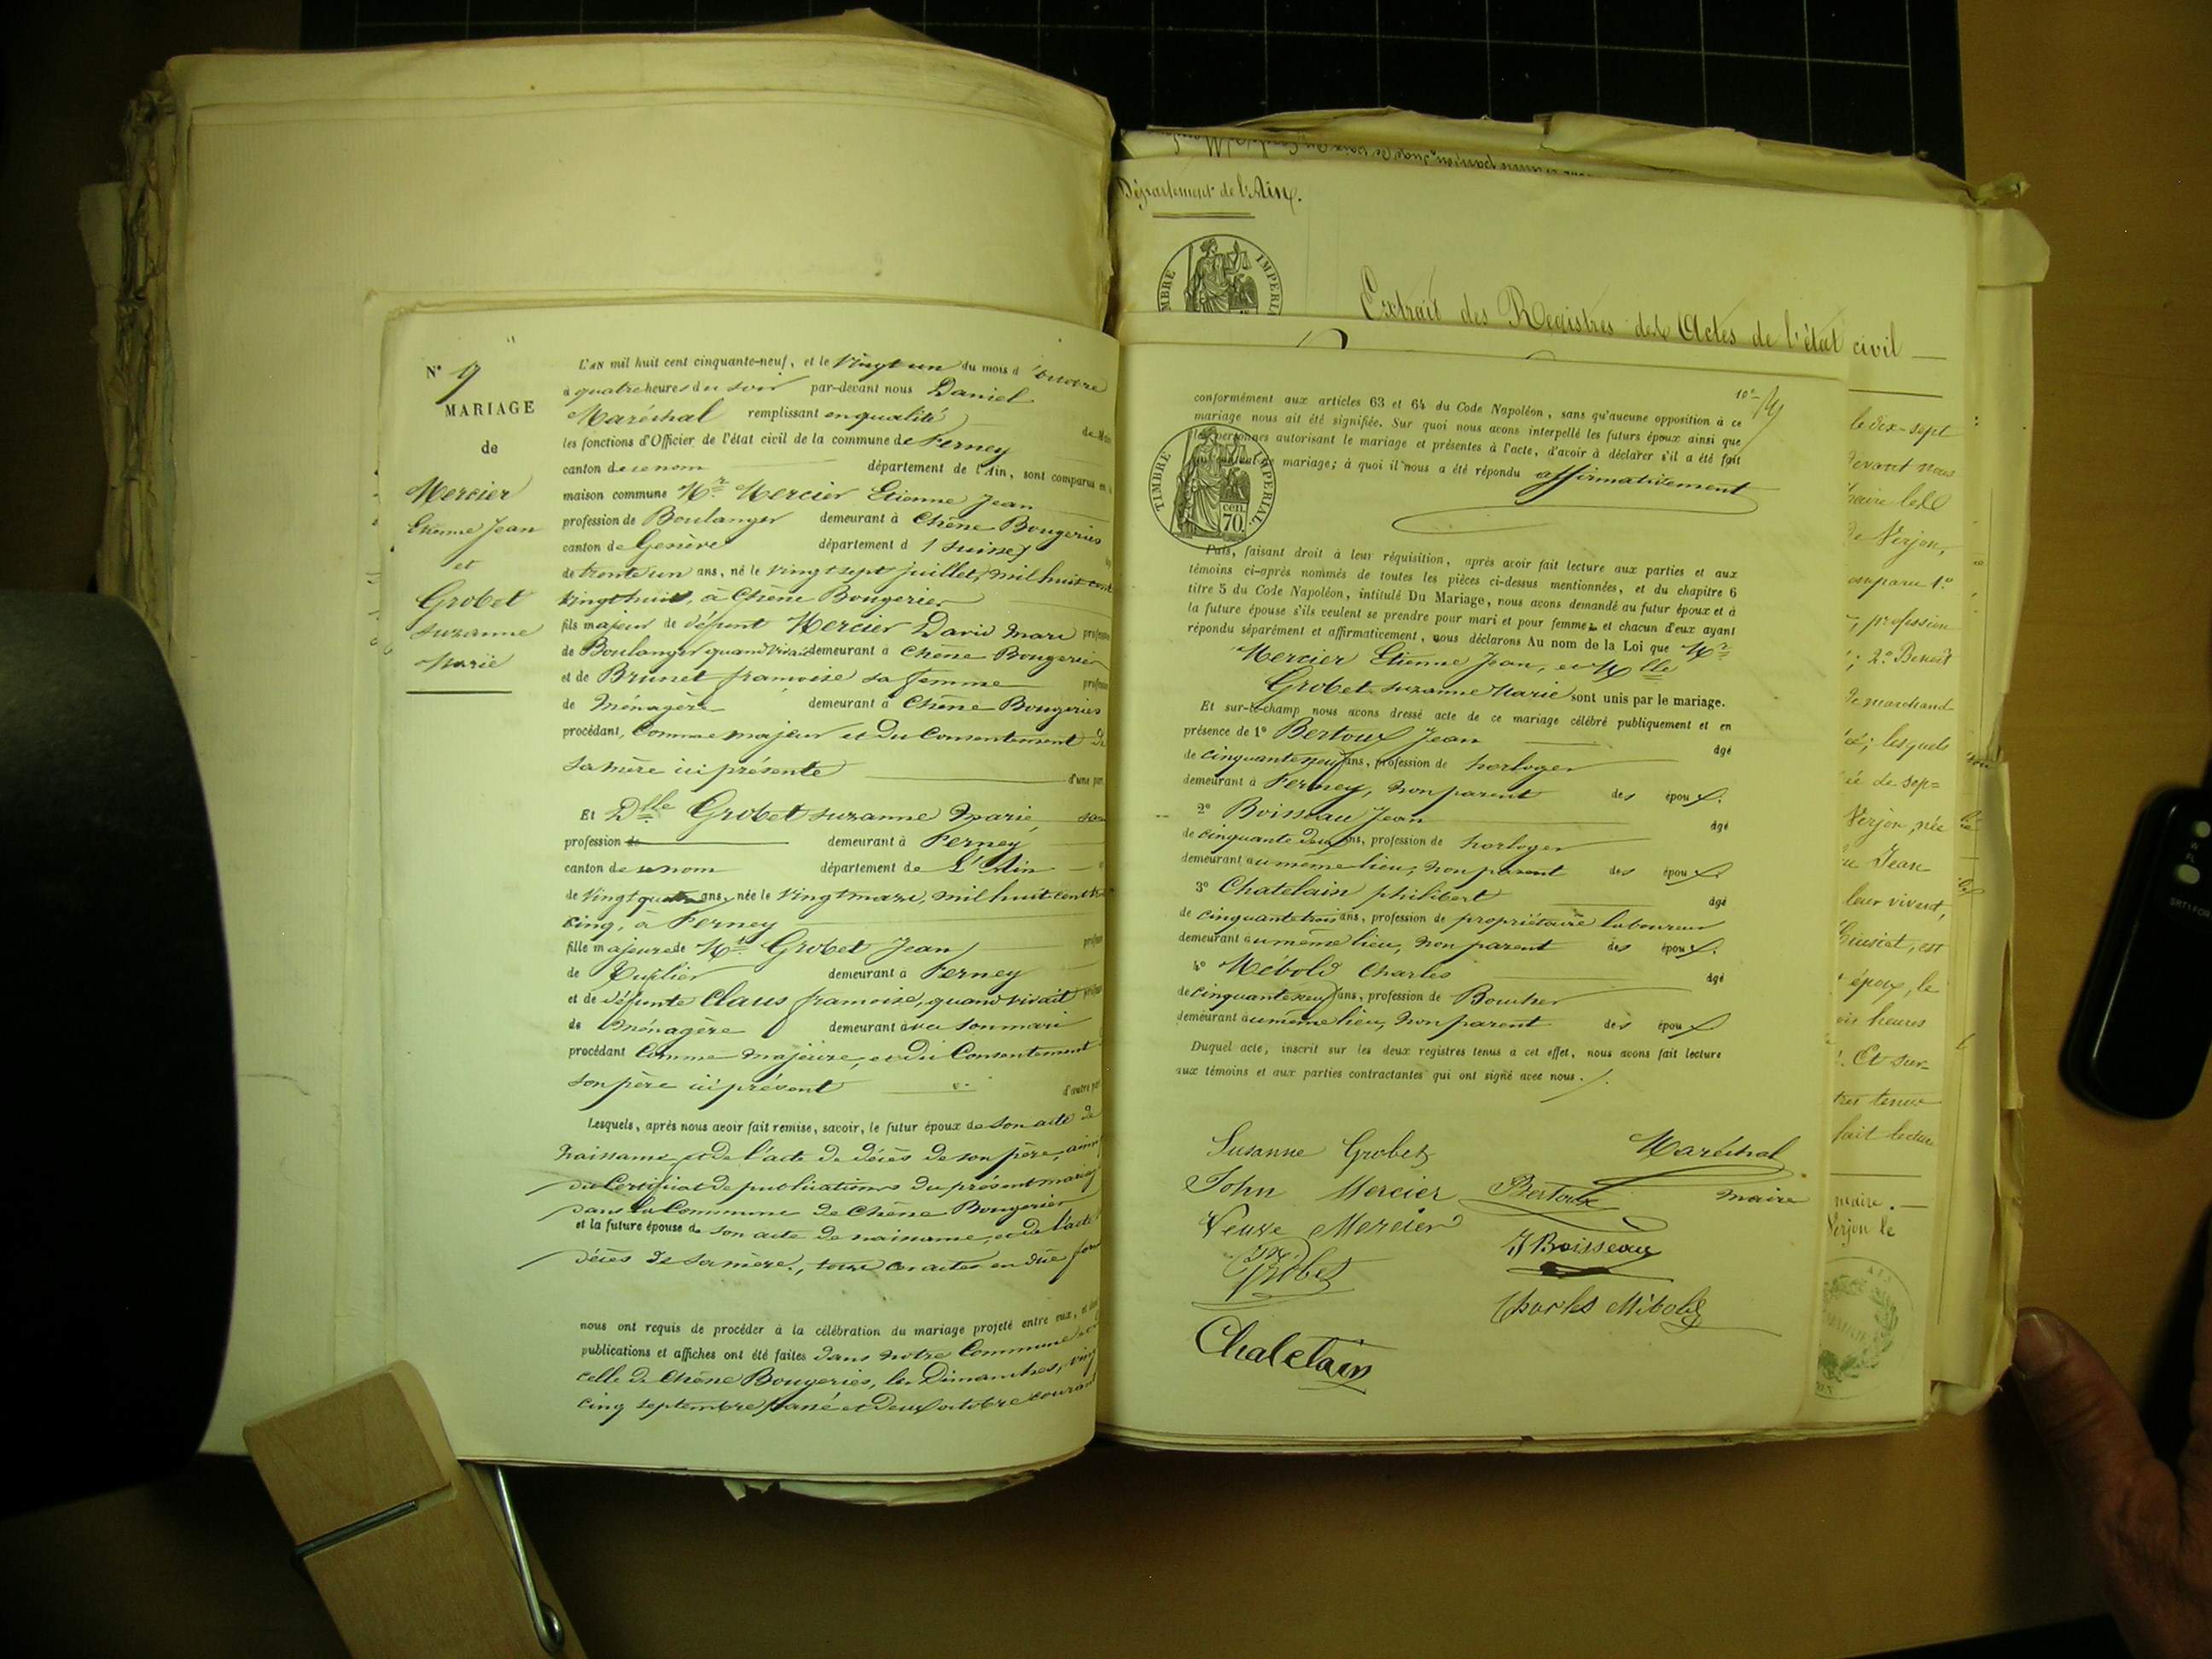 N° 9
MARIAGE
de
Mercier
Etienne Jean
et
Grobet
suzanne
Marie
L'AN mil huit cent cinquante-neuf, et le Vingt un du mois d'octobre
à quatre heures du soir par-devant nous Daniel
Maréchal remplissant en qualité de
les fonctions d'Officier de l'état civil de la commune de Ferney
canton de ce nom département de l'Ain, sont comparus en
maison commune Mr. Mercier Etienne Jean
profession de Boulanger demeurant à Chêne Bougeries
canton de Genève département d (Suisse)
de trente un ans, né le vingt sept juillet, mil huit cent
vingt huit, à Chêne Bougeries
fils majeur de défunt Mercier David Marc
de Boulanger quand vivait demeurant à Chêne Bougeries
et de Brunet françoise sa femme
de Ménagère demeurant à Chêne Bougeries
procédant, Comme majeur et du Consentement de
sa mère ici présente d'une part
Et Dlle Grobet suzanne Marie, sans
profession de demeurant à Ferney
canton de ce nom département de L'Ain
de vingt quatre ans, née le vingt mars, mil huit cent
cinq, à Ferney
fille majeure de Mr. Grobet Jean
de Tuilier demeurant à Ferney
et de défunte Claus françoise, quand vivait
de Ménagère demeurant avec son mari
procédant Comme majeure, et du Consentement
son père ici présent d'autre part
Lesquels, après nous avoir fait remise, savoir, le futur époux de son acte de
Naissance, et de l'acte de décès de son père, ainsi
du Certificat de publications du présent mariage
dans la Commune de Chêne Bougeries
et la future épouse de son acte de naissance, et de l'acte
décès de sa mère, tous ces actes en due forme
nous ont requis de procéder à la célébration du mariage projeté entre eux, et dont
publications et affiches ont été faites dans notre Commune et
celle de Chêne Bougeries, les Dimanches, vingt
cinq septembre passé et deux octobre courant
Département de l'Ain.
TIMBRE IMPERIAL
Extrait des Registres des Actes de l'état civil
conformément aux articles 63 et 64 du Code Napoléon, sans qu'aucune opposition à ce
mariage nous ait été signifiée. Sur quoi nous avons interpellé les futurs époux ainsi que
les personnes autorisant le mariage et présentes à l'acte, d'avoir à déclarer s'il a été fait
mariage; à quoi il nous a été répondu affirmativement
TIMBRE IMPERIAL.
cen.
70.
Puis, faisant droit à leur réquisition, après avoir fait lecture aux parties et aux
témoins ci-après nommés de toutes les pièces ci-dessus mentionnées, et du chapitre 6
titre 5 du Code Napoléon, intitulé Du Mariage, nous avons demandé au futur époux et à
la future épouse s'ils veulent se prendre pour mari et pour femme, et chacun d'eux ayant
répondu séparément et affirmativement, nous déclarons Au nom de la Loi que Mr.
Mercier Etienne Jean, et Mlle
Grobet suzanne Marie sont unis par le mariage.
Et sur-le-champ nous avons dressé acte de ce mariage célébré publiquement et en
présence de 1° Bertoux Jean âgé
de cinquante neuf ans, profession de horloger
demeurant à Ferney, non parent des époux.
2° Boisseau Jean âgé
de cinquante deux ans, profession de horloger
demeurant au même lieu, non parent des époux.
3° Chatelain philibert âgé
de cinquante trois ans, profession de propriétaire laboureur
demeurant au même lieu, non parent des époux.
4° Mébold Charles âgé
de cinquante neuf ans, profession de Boucher
demeurant au même lieu, non parent des époux
Duquel acte, inscrit sur les deux registres tenus à cet effet, nous avons fait lecture
aux témoins et aux parties contractantes qui ont signé avec nous.
Susanne Grobet
Maréchal
maire
John Mercier
Bertoux
Veuve Mercier
J Boisseau
Grobet
Charles Mébold
Chatelain
le dix-sept
devant nous
de Verjon,
comparu 1°
, profession
; 2° Benoit
de marchand
; lesquels
de sep=
Verjon, née
Jean
leur vivent,
, est
époux, le
heures
. Et sur-
tenue
fait lecture
maire.
Verjon le